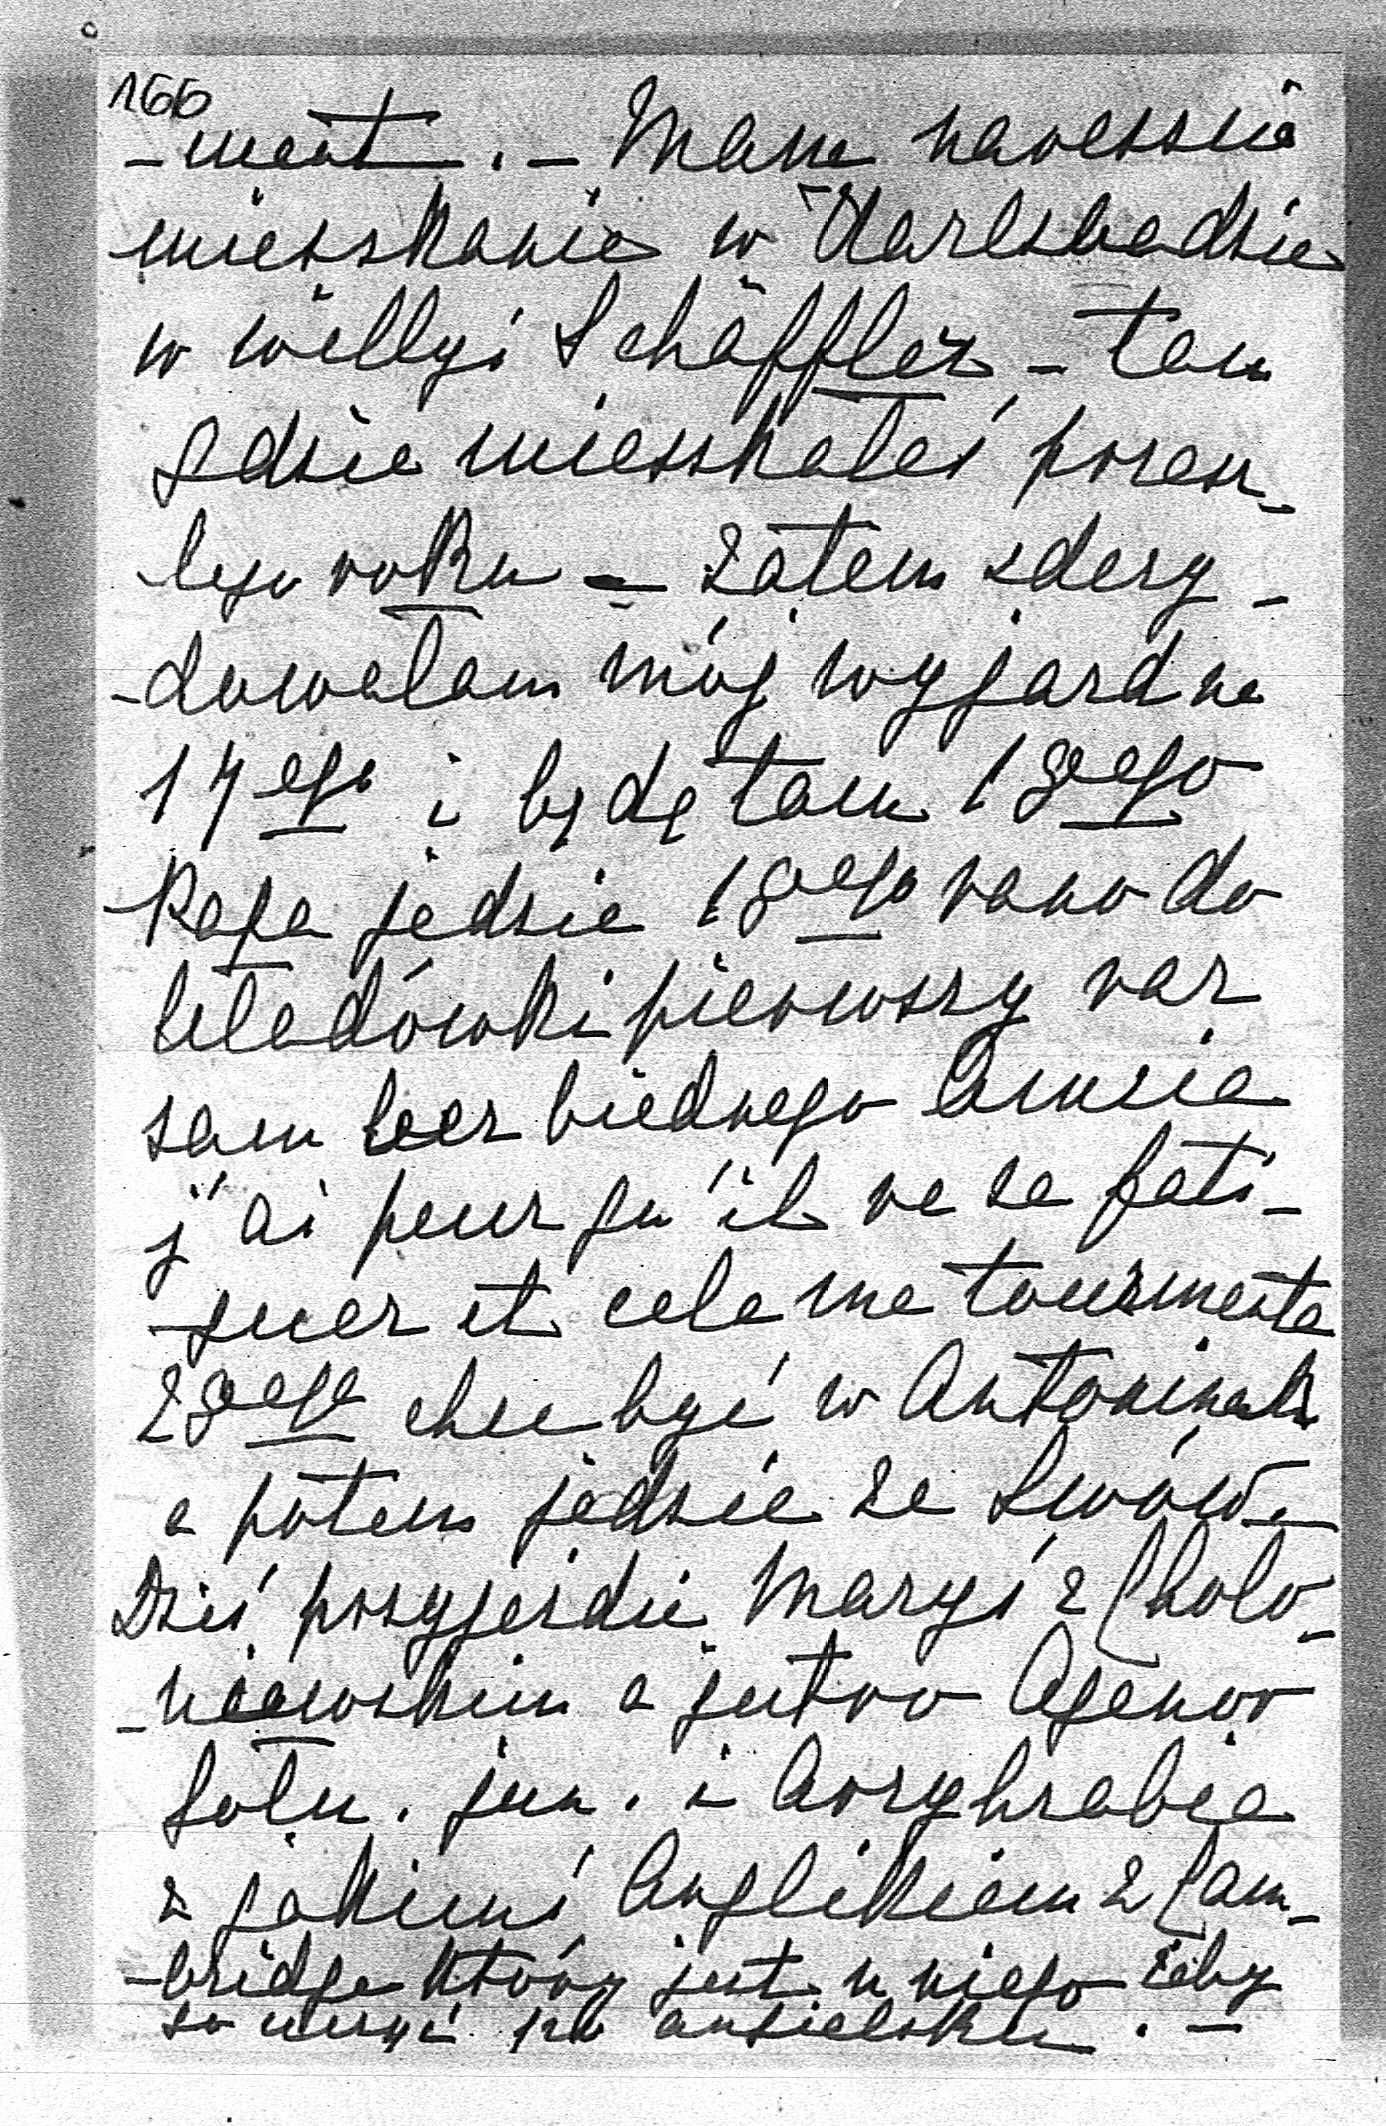 166
-ment. - Mam nareszcie
mieszkanie w Karlsbadzie
w willyi Schäffler - tam
gdzie mieszkałeś przesz-
łego roku - Zatem zdecy-
-dowałam mój wyjazd na
17ego i będę tam 18ego
Papa jedzie 18ego rano do
Uładówki pierwszy raz
sam bez biednego Amusia
j'ai peur qu'il ne se fati-
-guer et cela me tourmente
28ego chce być w Antoninach
a potem jedzie ze Lwów.
Dziś przyjeżdża Maryś z Cholo-
-niewskim a jutro Agenor
Gołu. jun. i Arcyhrabia
z jakimś Anglikiem z Cam-
-bridge który jest u niego żeby
go uczyć po angielsku. -